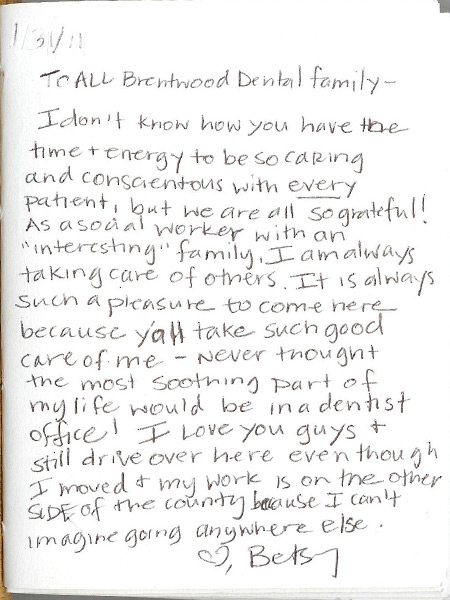 1/31/11
To ALL Brentwood Dental family -
I don't know how you have the
time + energy to be so caring
and conscientous with every
patient, but we are all so grateful!
As a social worker with an
"interesting" family, I am always
taking care of others. It is always
such a pleasure to come here
because y'all take such good
care of me - Never thought
the most soothing part of
my life would be in a dentist
office! I Love you guys +
still drive over here even though
I moved + my work is on the other
SIDE of the county because I can't
imagine going anywhere else.
♡, Betsy